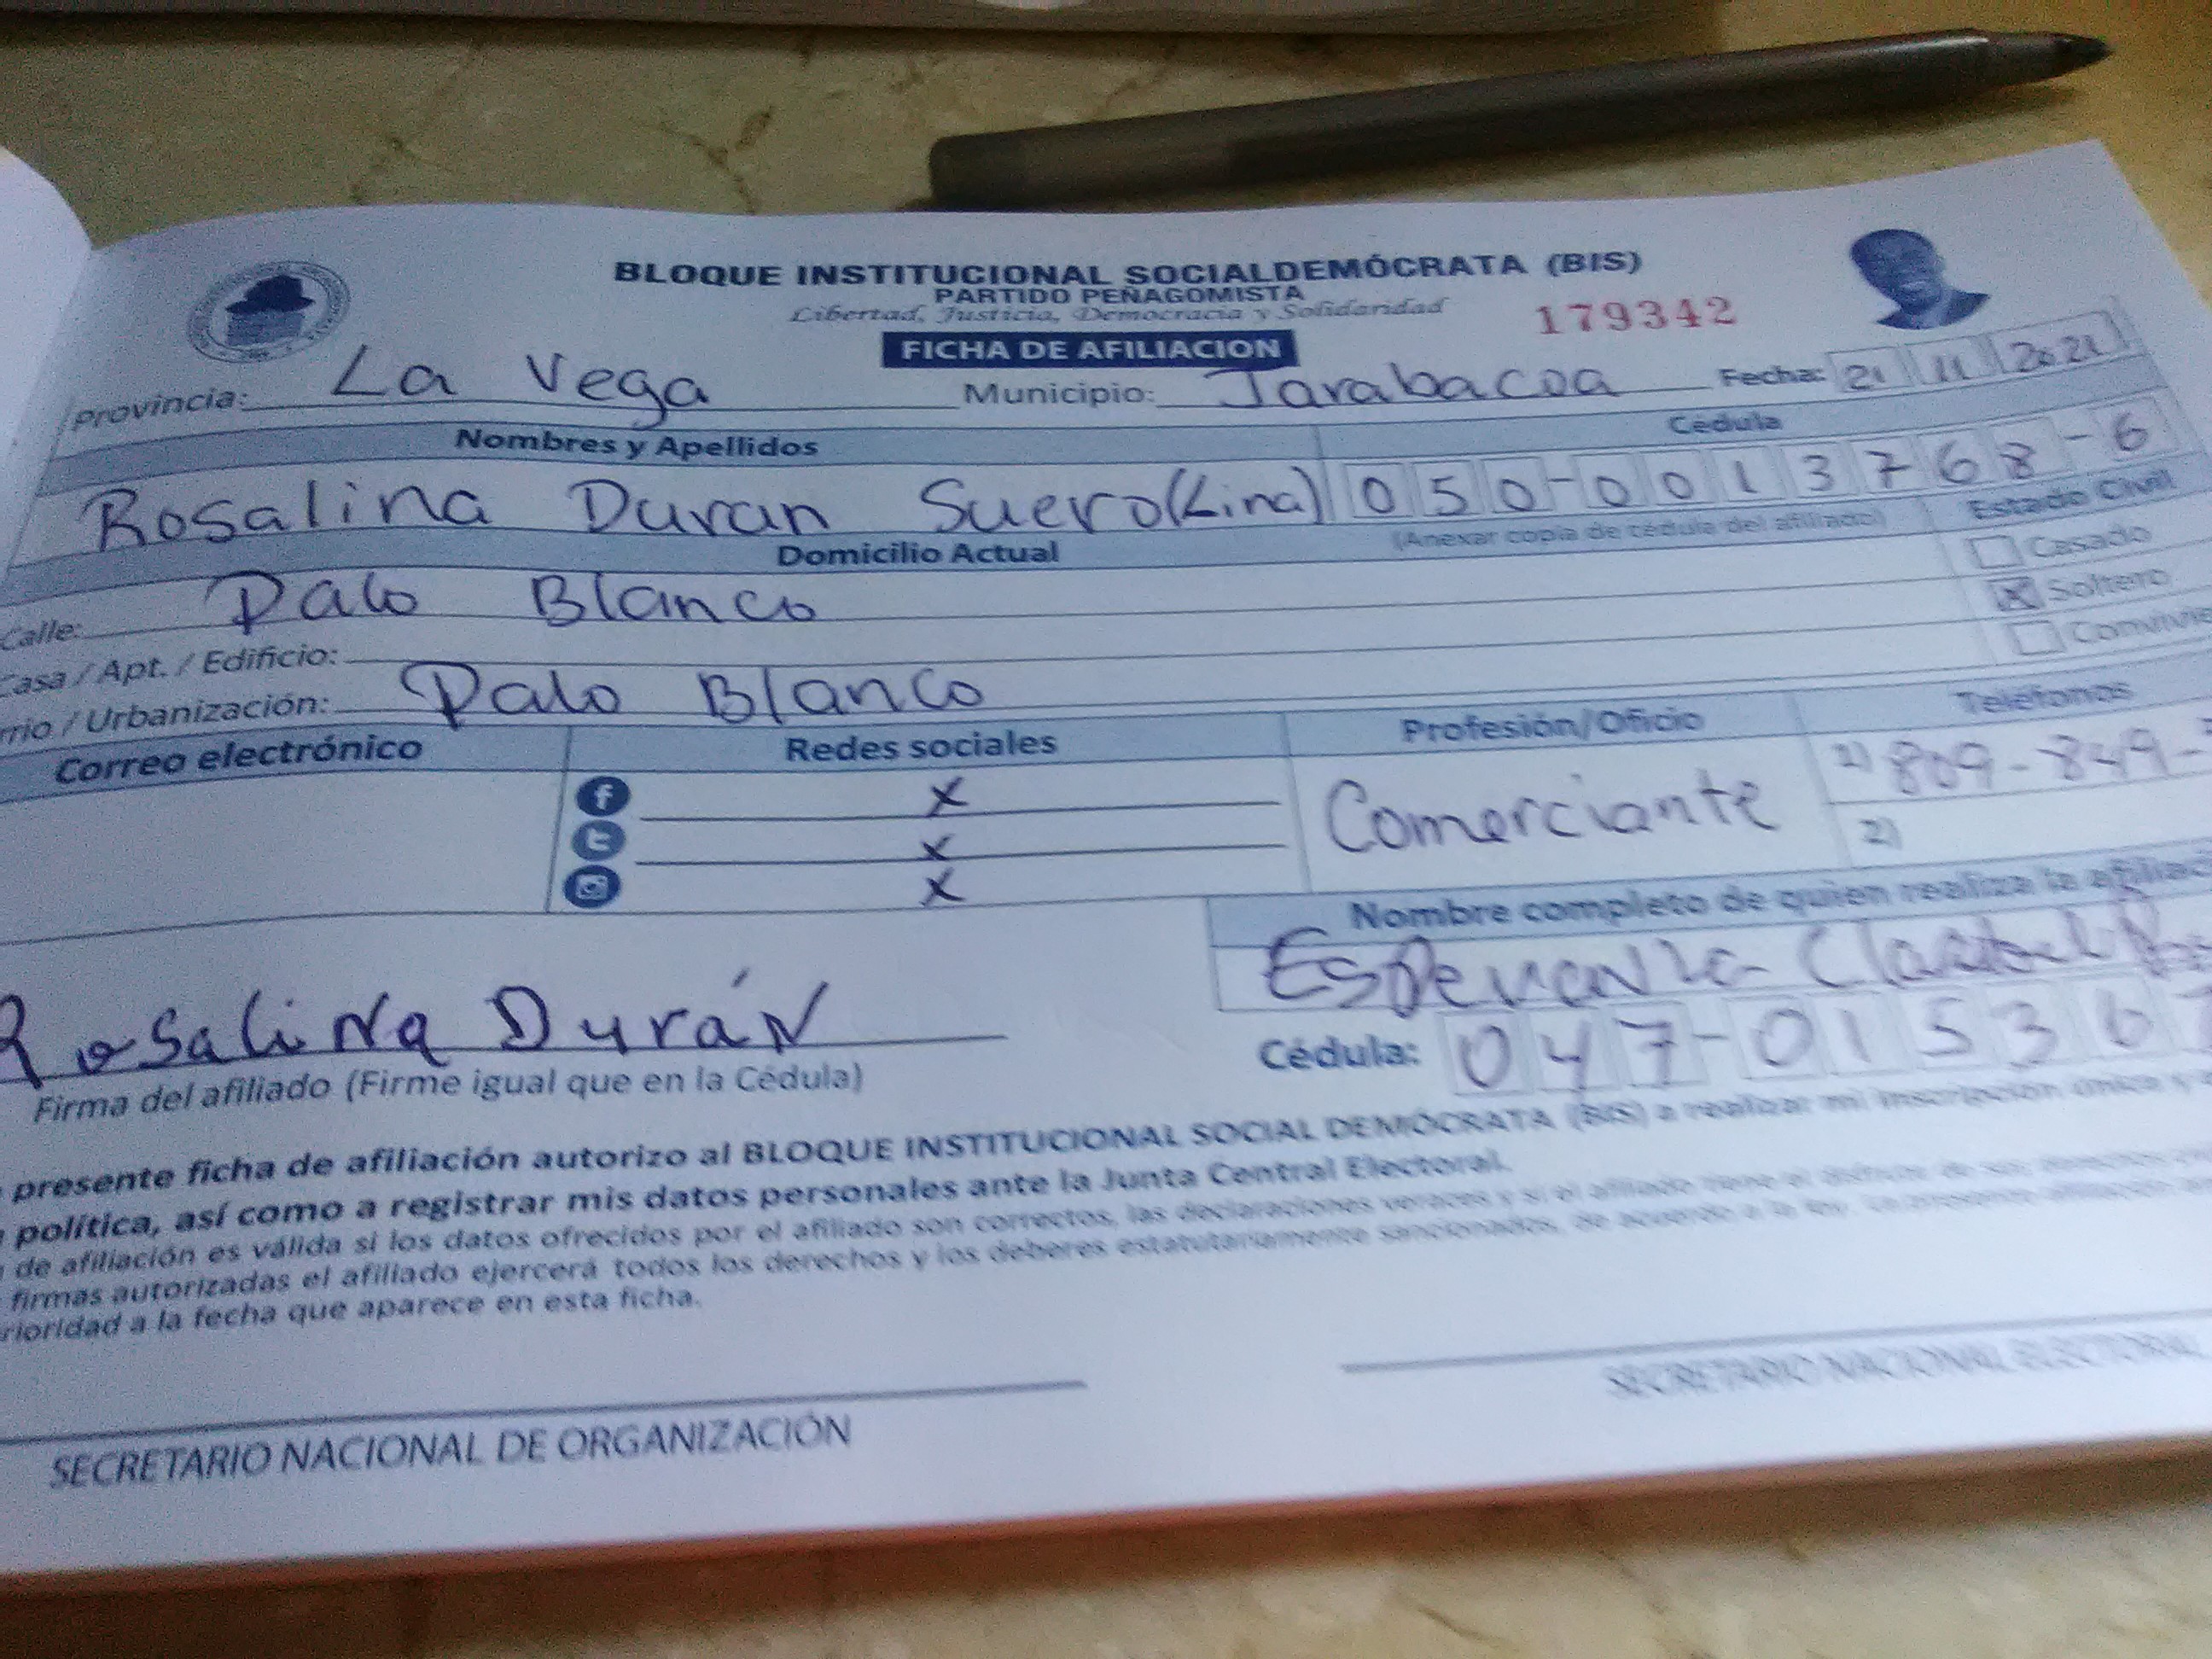 BLOQUE INSTITUCIONAL SOCIALDEMÓCRATA (BIS)
PARTIDO PEÑAGOMISTA
Libertad, Justicia, Democracia y Solidaridad
179342
FICHA DE AFILIACION
Provincia: La Vega Municipio: Jarabacoa Fecha: 21 11 2021
Nombres y Apellidos Cédula
Rosalina Duran Suero (Lina) 050-0013768-6
(Anexar copia de cédula del afiliado)
Domicilio Actual Estado Civil
Calle: Palo Blanco
Casado
Casa / Apt. / Edificio:
X Soltero
rrio / Urbanización: Palo Blanco
Correo electrónico Redes sociales Profesión/Oficio Teléfonos
X
X
X
Comerciante
1) 809-849-
2)
Nombre completo de quien realiza la afiliac
Esperanza
Rosalina Durán
Cédula: 047-015367
Firma del afiliado (Firme igual que en la Cédula)
presente ficha de afiliación autorizo al BLOQUE INSTITUCIONAL SOCIAL DEMÓCRATA (BIS) a realizar mi inscripción única y
política, así como a registrar mis datos personales ante la Junta Central Electoral.
de afiliación es válida si los datos ofrecidos por el afiliado son correctos, las declaraciones veraces y si el afiliado tiene el disfrute de sus derechos
firmas autorizadas el afiliado ejercerá todos los derechos y los deberes estatutariamente sancionados, de acuerdo a la ley.
rioridad a la fecha que aparece en esta ficha.
SECRETARIO NACIONAL DE ORGANIZACIÓN
SECRETARIO NACIONAL ELECTORAL